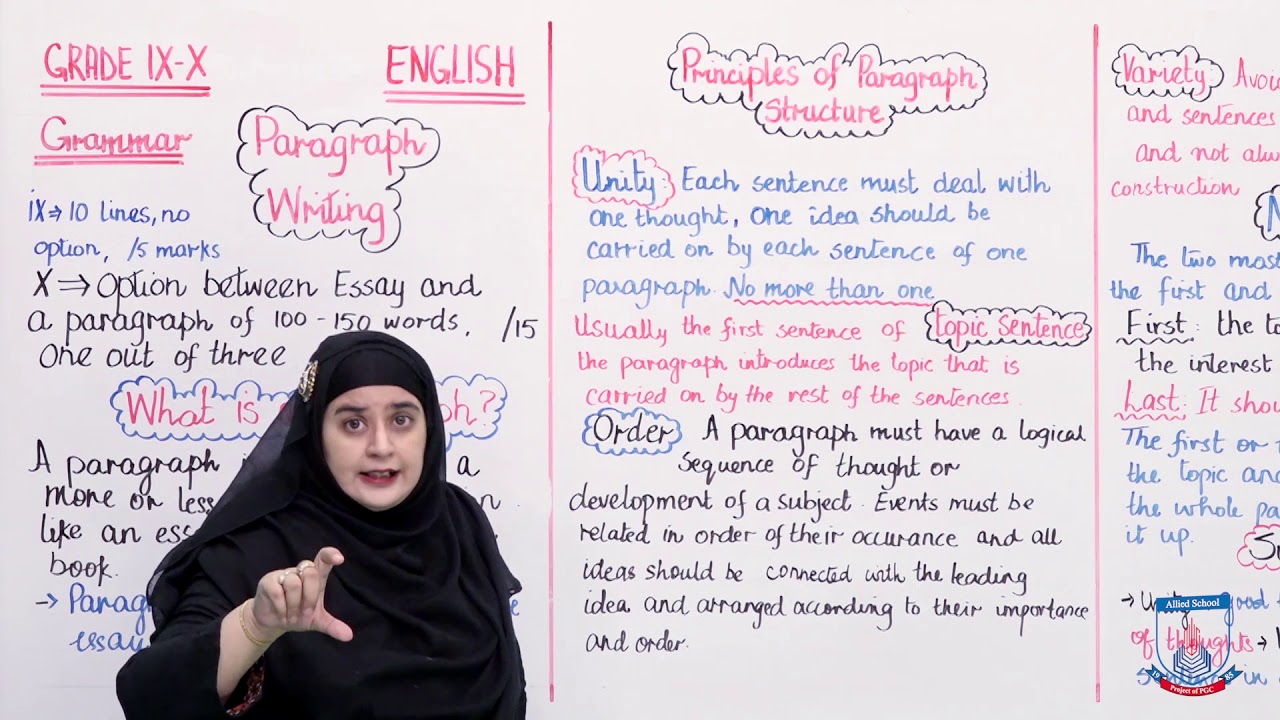 GRADE IX-X
ENGLISH
Grammar
Paragraph
Writing
IX⇒10 lines, no
option, /5 marks
X⇒Option between Essay and
a paragraph of 100-150 words. /15
One out of three
What is
A paragraph
a
more or less
like an
book.
→
essay
Principles of Paragraph
Structure
Unity: Each sentence must deal with
one thought, One idea should be
carried on by each sentence of one
paragraph. No more than one
Usually the first sentence of topic sentence
the paragraph introduces the topic that is
carried on by the rest of the sentences.
Order A paragraph must have a logical
sequence of thought or
development of a subject. Events must be
related in order of their occurance and all
ideas should be connected with the leading
idea and arranged according to their importance
and order.
Variety: 
and sentences
and not
construction
The two most
the first and
First: the
the interest
Last: It
The first or
the topic
the whole
it up.
→ Unity
of thoughts →
in
Allied School
19 85
Project of PGC